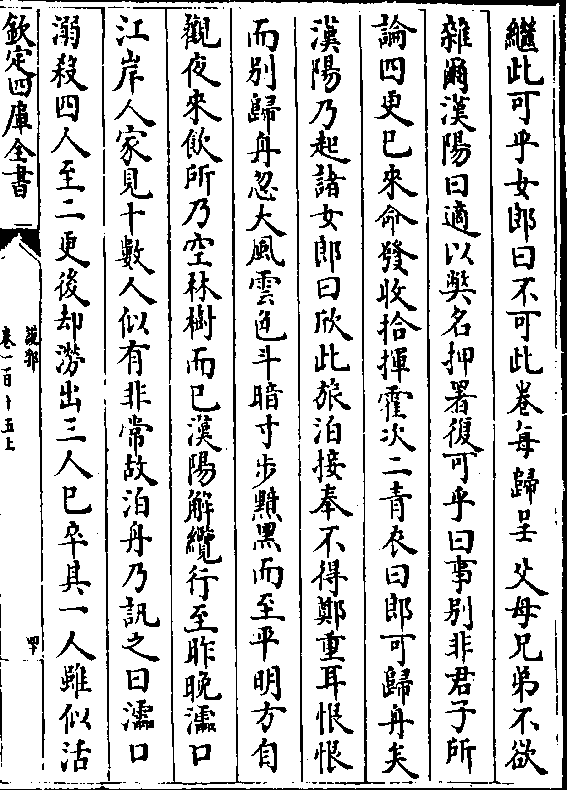 繼此可乎女郎曰不可此卷每歸呈父母兄弟不欲
雜爾漢陽曰適以弊名押署復可乎曰事别非君子所
論四更已來命發收拾揮霍次二青衣曰郎可歸舟矣
漢陽乃起諸女郎曰欣此旅泊接奉不得鄭重耳恨恨
而别歸舟忽大風雲色斗暗寸步黯黑而至平明方自
觀夜來飲所乃空林樹而已漢陽解纜行至昨晚濡口
江岸人家見十數人似有非常故泊舟乃訊之曰濡口
溺殺四人至二更後却澇出三人已卒其一人雖似活
欽定四庫全書
說郛
卷一百十五上
四十